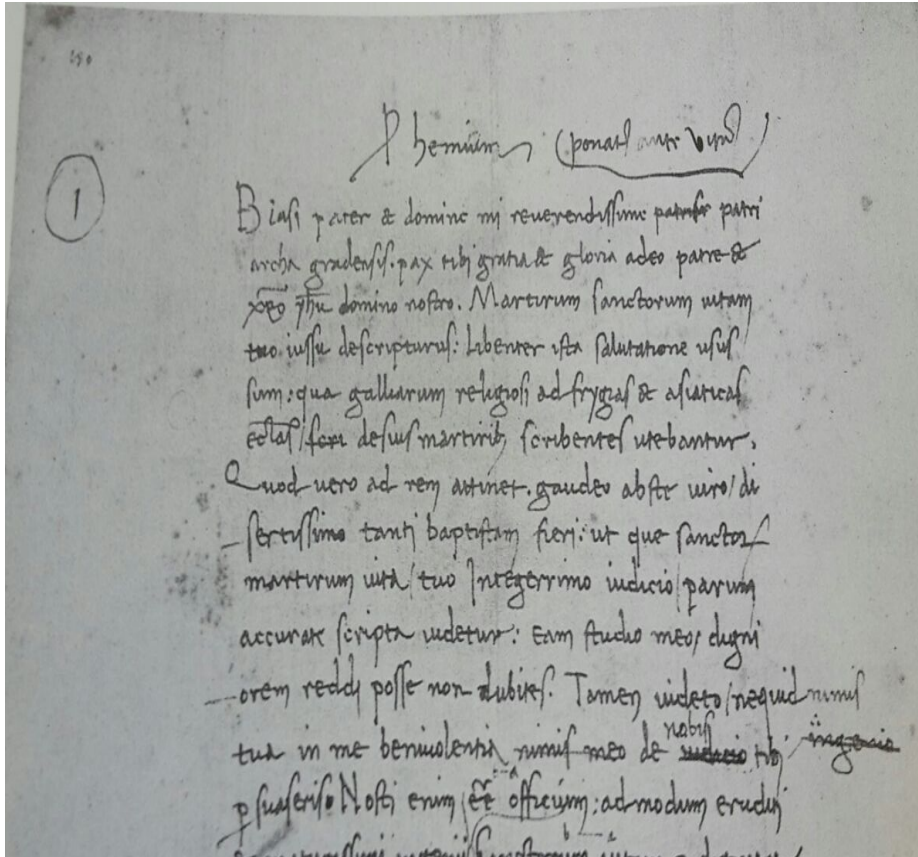 180
Phemium (ponat ante vitã)
1
Blasi pater & domine mi reverendissime patriar patri
archa gradensis. pax tibi gratia & gloria a deo patre &
xp̃o yh̃u domino nostro. Martirum sanctorum uitam
tuo iussu descripturus: libenter ista salutatione usus
sum: qua galliarum religiosi ad frygias & asiaticas
eccl̃as / de suis martirib; scribentes utebantur.
Quod uero ad rem attinet. gaudeo abste uiro / di
sertissimo tanti baptistam fieri: ut que sanctor
martirum uita / tuo Integerrimo iudicio / parum
accurate scripta uidetur: Eam studio meo / digni
orem reddi posse non dubites. Tamen uideto / nequid nimis
tua in me beniuolentia nimis meo de nobis tibi ingenio
p suaseris. Nosti enim / ee᷃ officium: ad modum eruditi